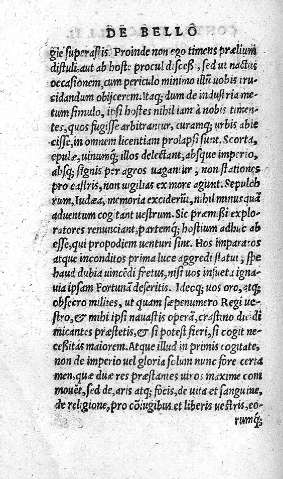 DE BELLO
gie superassis. Proinde non ego timens prælium
distuli, aut ab hoste procul discessi, sed ut nactus
occasionem, cum periculo minimo illũ uobis tru-
cidandum obijcerem. Itaq; dum de industria me-
tum simulo, ipsi hostes nihil iam à nobis timen-
tes, quos fugisse arbitrantur, curamq; urbis abie
cisse, in omnem licentiam prolapsi sunt. Scorta,
epulæ, uinumq; illos delectant, absque imperio,
absq; signis per agros uagantur, non stationes
pro castris, non uigilias ex more agunt. Sepulchro
rum, Iudæa, memoria excidium, nihil minus quàm
aduentum cogitant uestrum. Sic præmissi explo-
ratores renunciant, partemq; hostium adhuc ab
esse, qui propediem uenturi sint. Hos imparatos
atque inconditos prima luce aggredi statui, spe
haud dubia uincendi fretus, nisi uos insueta igna
uia ipsam Fortunã deseritis. Ideoq; uos oro, atq;
obsecro milites, ut quam sæpenumero Regi ue-
stro, & mihi ipsi nauastis operã, crastino die di
micantes præstetis, & si potest fieri, si cogit ne
ceßitas maiorem. Atque illud in primis cogitate,
non de imperio uel gloria solum nunc fore certa
men, quæ duæ res præstantes uiros maxime com
mouẽt, sed de aris atq; focis, de uita et sanguine,
de religione, pro cõiugibus et liberis uestris, eo-
rumq;